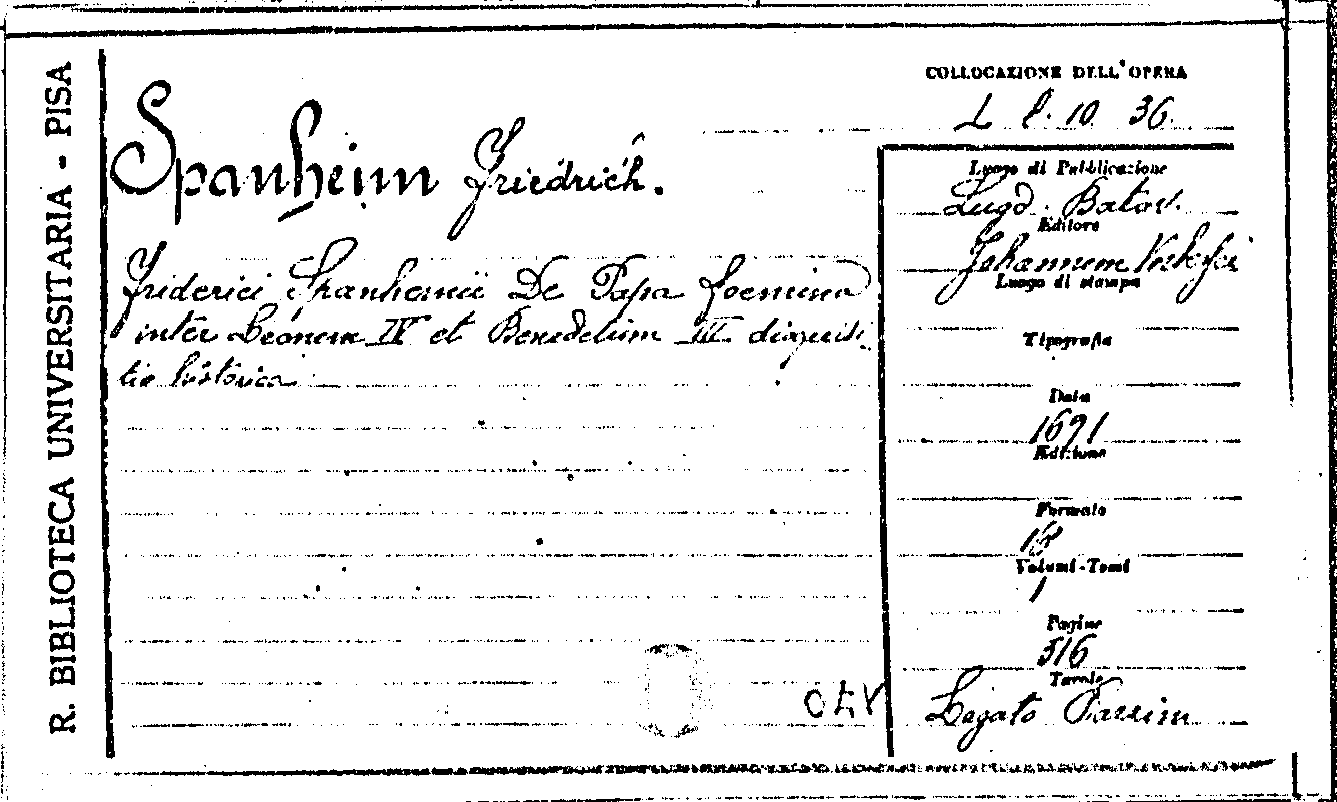 R. BIBLIOTECA UNIVERSITARIA - PISA
COLLOCAZIONE DELL'OPERA
L l. 10 36.
Spanheim Friedrich.
Friderici Spanhemii De Papa foemina
inter Leonem IV et Benedictum III disquisi-
tio historica
Luogo di Pubblicazione
Lugd. Batav.
Editore
Johannem
Luogo di stampa
Tipografia
Data
1691
Edizione
Formato
Volumi-Tomi
1
Pagine
516
Tavole
Legato